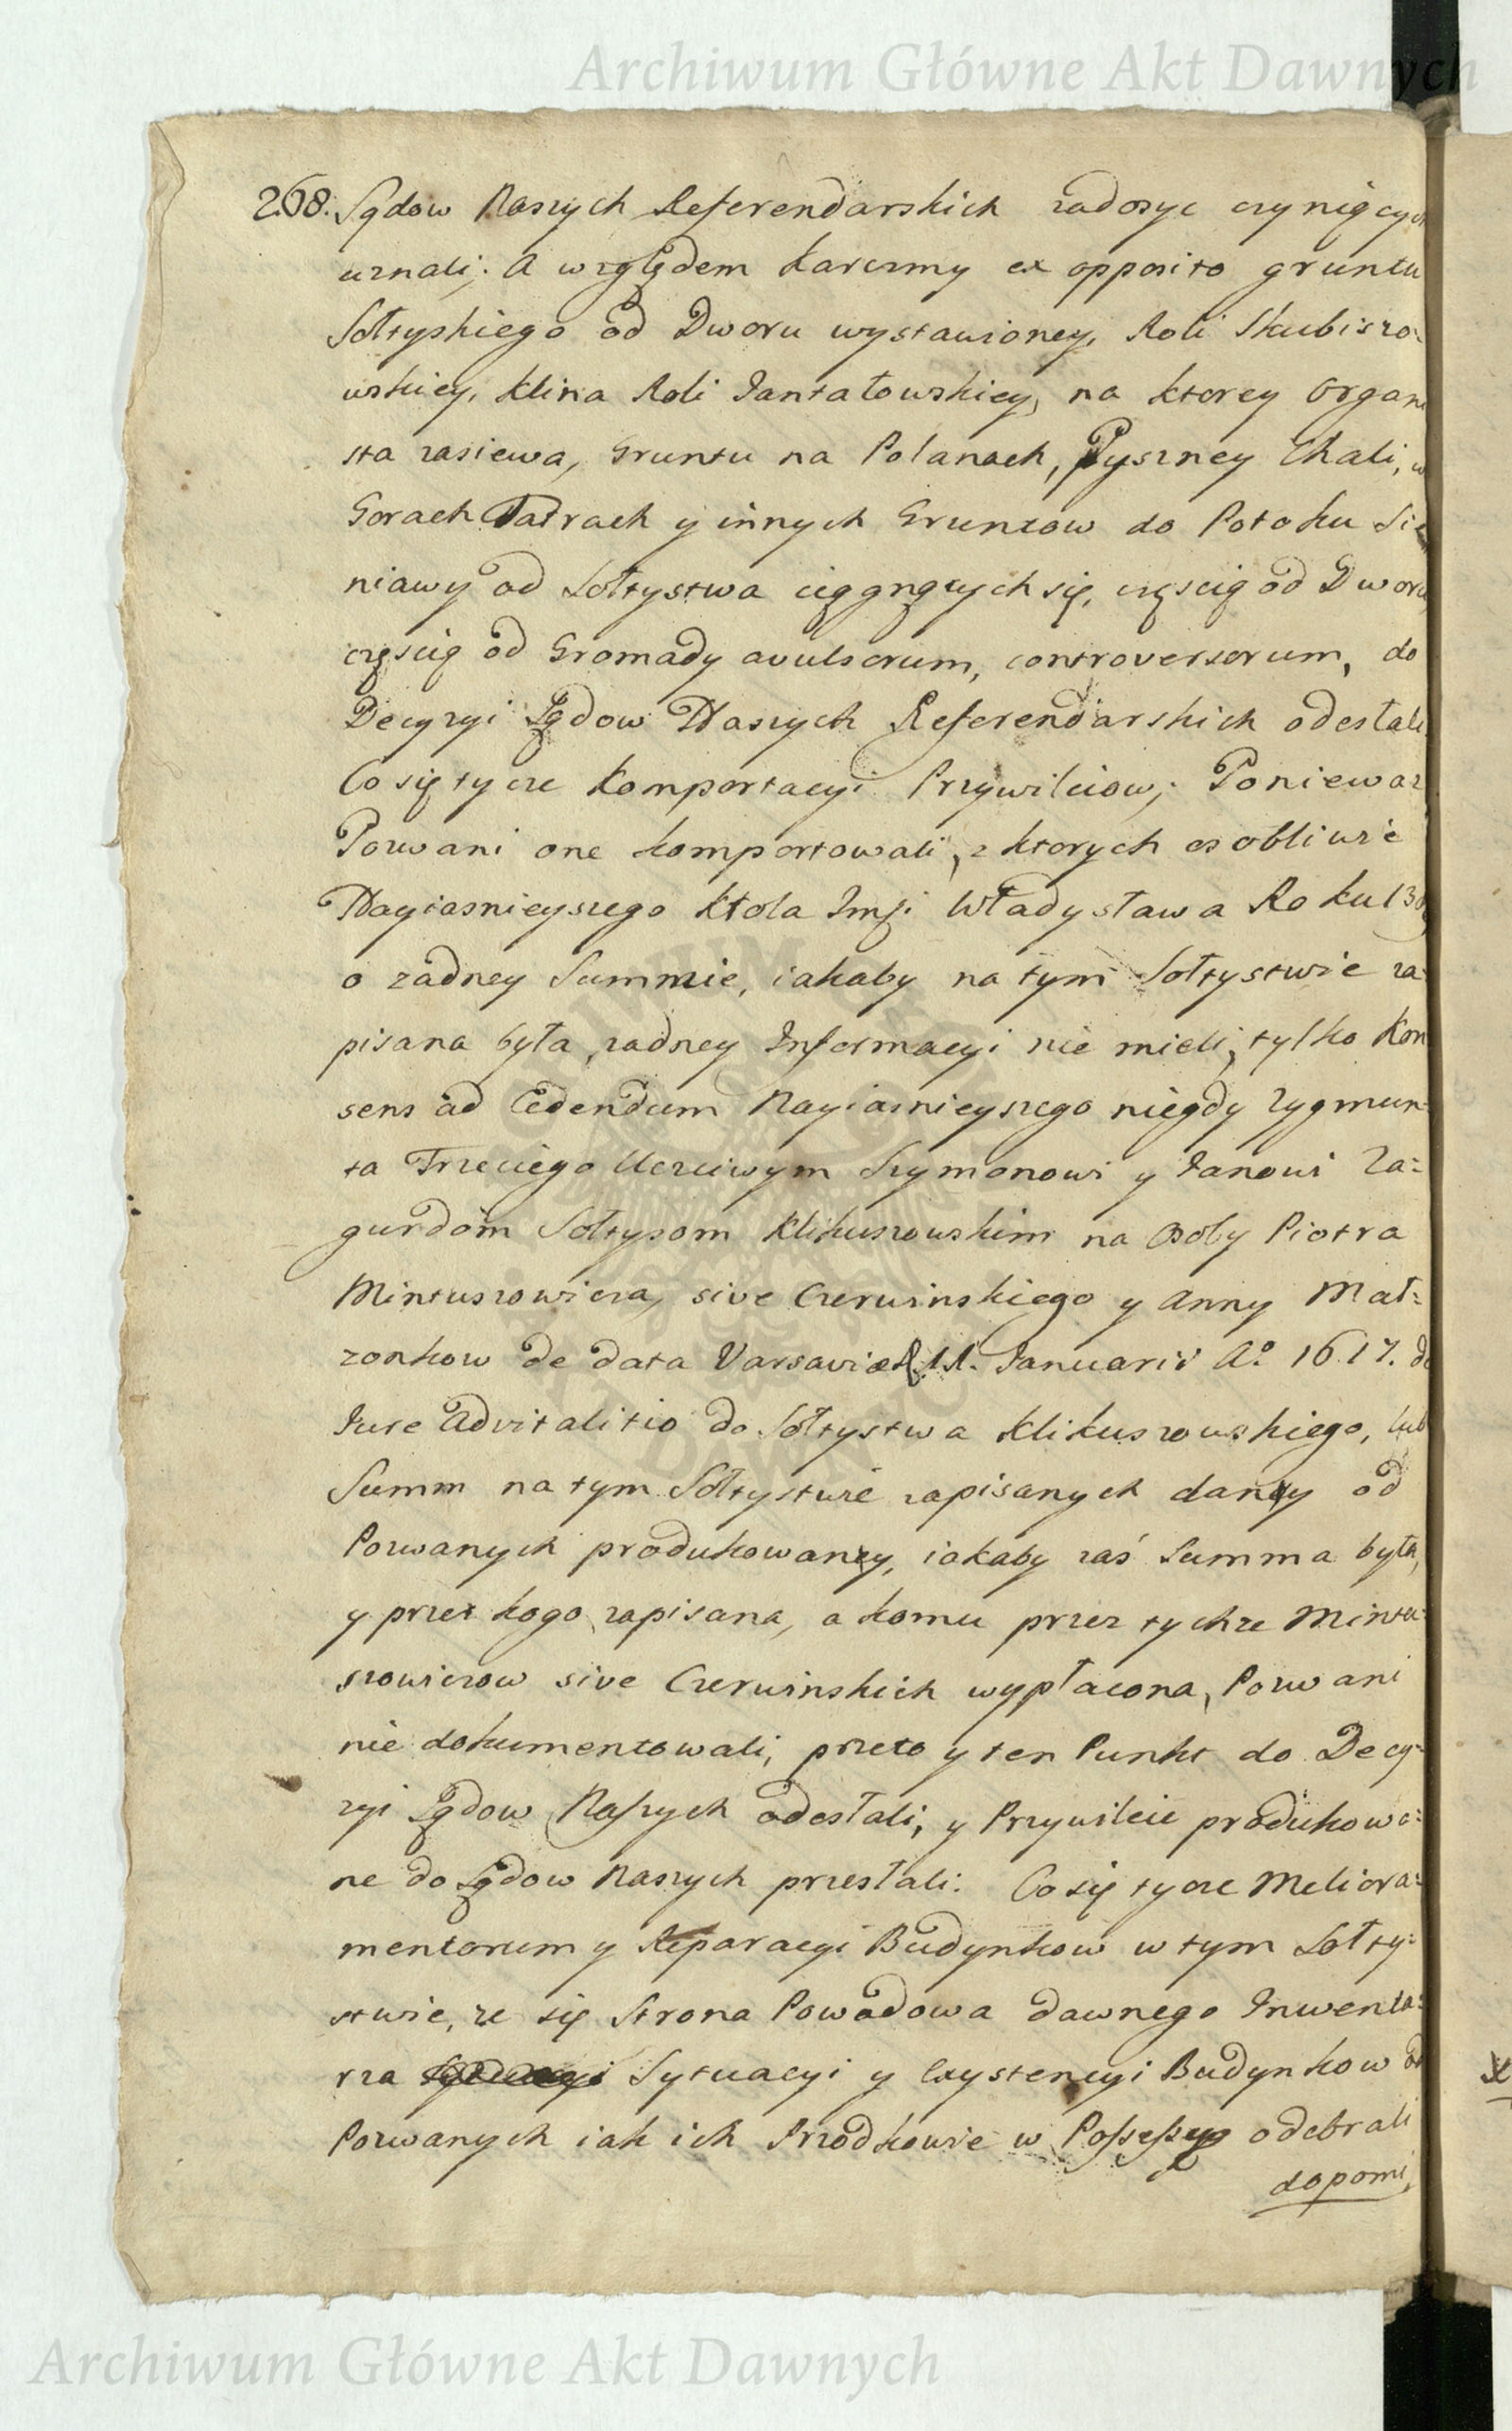 Archiwum Główne Akt Dawnych
268. Sądow Naszych Referendarskich zadosyc czyniących
uznali; A względem Karczmy ex opposito gruntu
Sołtyskiego od Dworu wystawioney, Roli Skubiszo-
wskiey, Klina Roli Jantałowskiey, na ktorey Organi
sta zasiewa, Gruntu na Polanach, Pyszney Chali, w
Gorach Tatrach y innych Gruntow do Potoku Sie
niawy od Sołtystwa ciągnących się, częscią od Dworu
częscią od Gromady avulsorum, controversorum, do
Decyzyi Sądow Naszych Referendarskich odesłali
Co się tycze Komportacyi Przywileiow; Poniewaz
Pozwani one komportowali, z ktorych osobliwie
Nayiasnieyszego Krola Imci Władysława Roku
o zadney Summie, iakaby na tym Sołtystwie za-
pisana była, zadney Informacyi nie mieli, tylko Kon
sens ad Cedendum Nayiasnieyszego niegdy Zygmun-
ta Trzeciego Uczciwym Szymonowi y Janowi Za=
gurdom Sołtysom Klikuszowskim na Osoby Piotra
Mintuszowicza, sive Czerwinskiego y Anny Mał=
zonkow de data Varsaviæ 11. Januarii Aº 1617. de
Jure Advitalitio do Sołtystwa Klikuszowskiego, lub
Summ na tym Sołtystwie zapisanych dany od
Pozwanych produkowany, iakaby zaś Summa była,
y przez kogo zapisana, a komu przez tychze Mintu=
szowiczow sive Czerwinskich wypłacona, Pozwani
nie dokumentowali, przeto y ten Punkt do Decy-
zyi Sądow Naszych odesłali, y Przywileie produkowa=
ne do Sądow Naszych przesłali. Co się tycze Meliora=
mentorum y Reparacyi Budynkow w tym Sołty=
stwie, ze się Strona Powodowa dawnego Inwenta=
rza Sytuacyi y Exystencyi Budynkow od
Pozwanych iak ich Przodkowie w Possessyą odebrali
dopomi,
Archiwum Główne Akt Dawnych